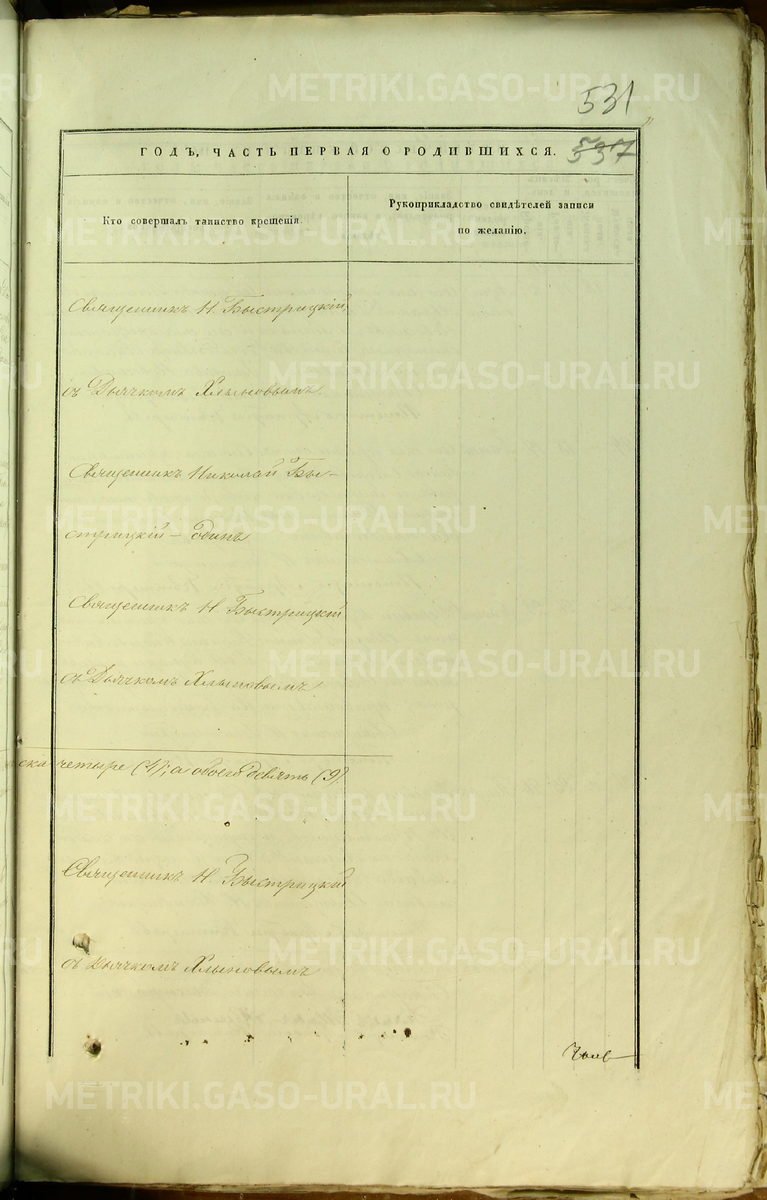 531
ГОДЪ, ЧАСТЬ ПЕРВАЯ О РОДИВШИХСЯ.
537
Кто совершалъ таинство крещенія.
Рукоприкладство свидѣтелей записи
по желанію.
Священникъ Н. Быстрицкій,
съ Дьячкомъ Хлыновымъ.
Священникъ Николай Бы-
стрицкій – одинъ
Священникъ Н. Быстрицкій
съ Дьячкомъ Хлыновымъ.
ска четыре (4); а обоего девять (9).
Священникъ Н. Быстрицкій
съ Дьячкомъ Хлыновымъ
METRIKI.GASO-URAL.RU